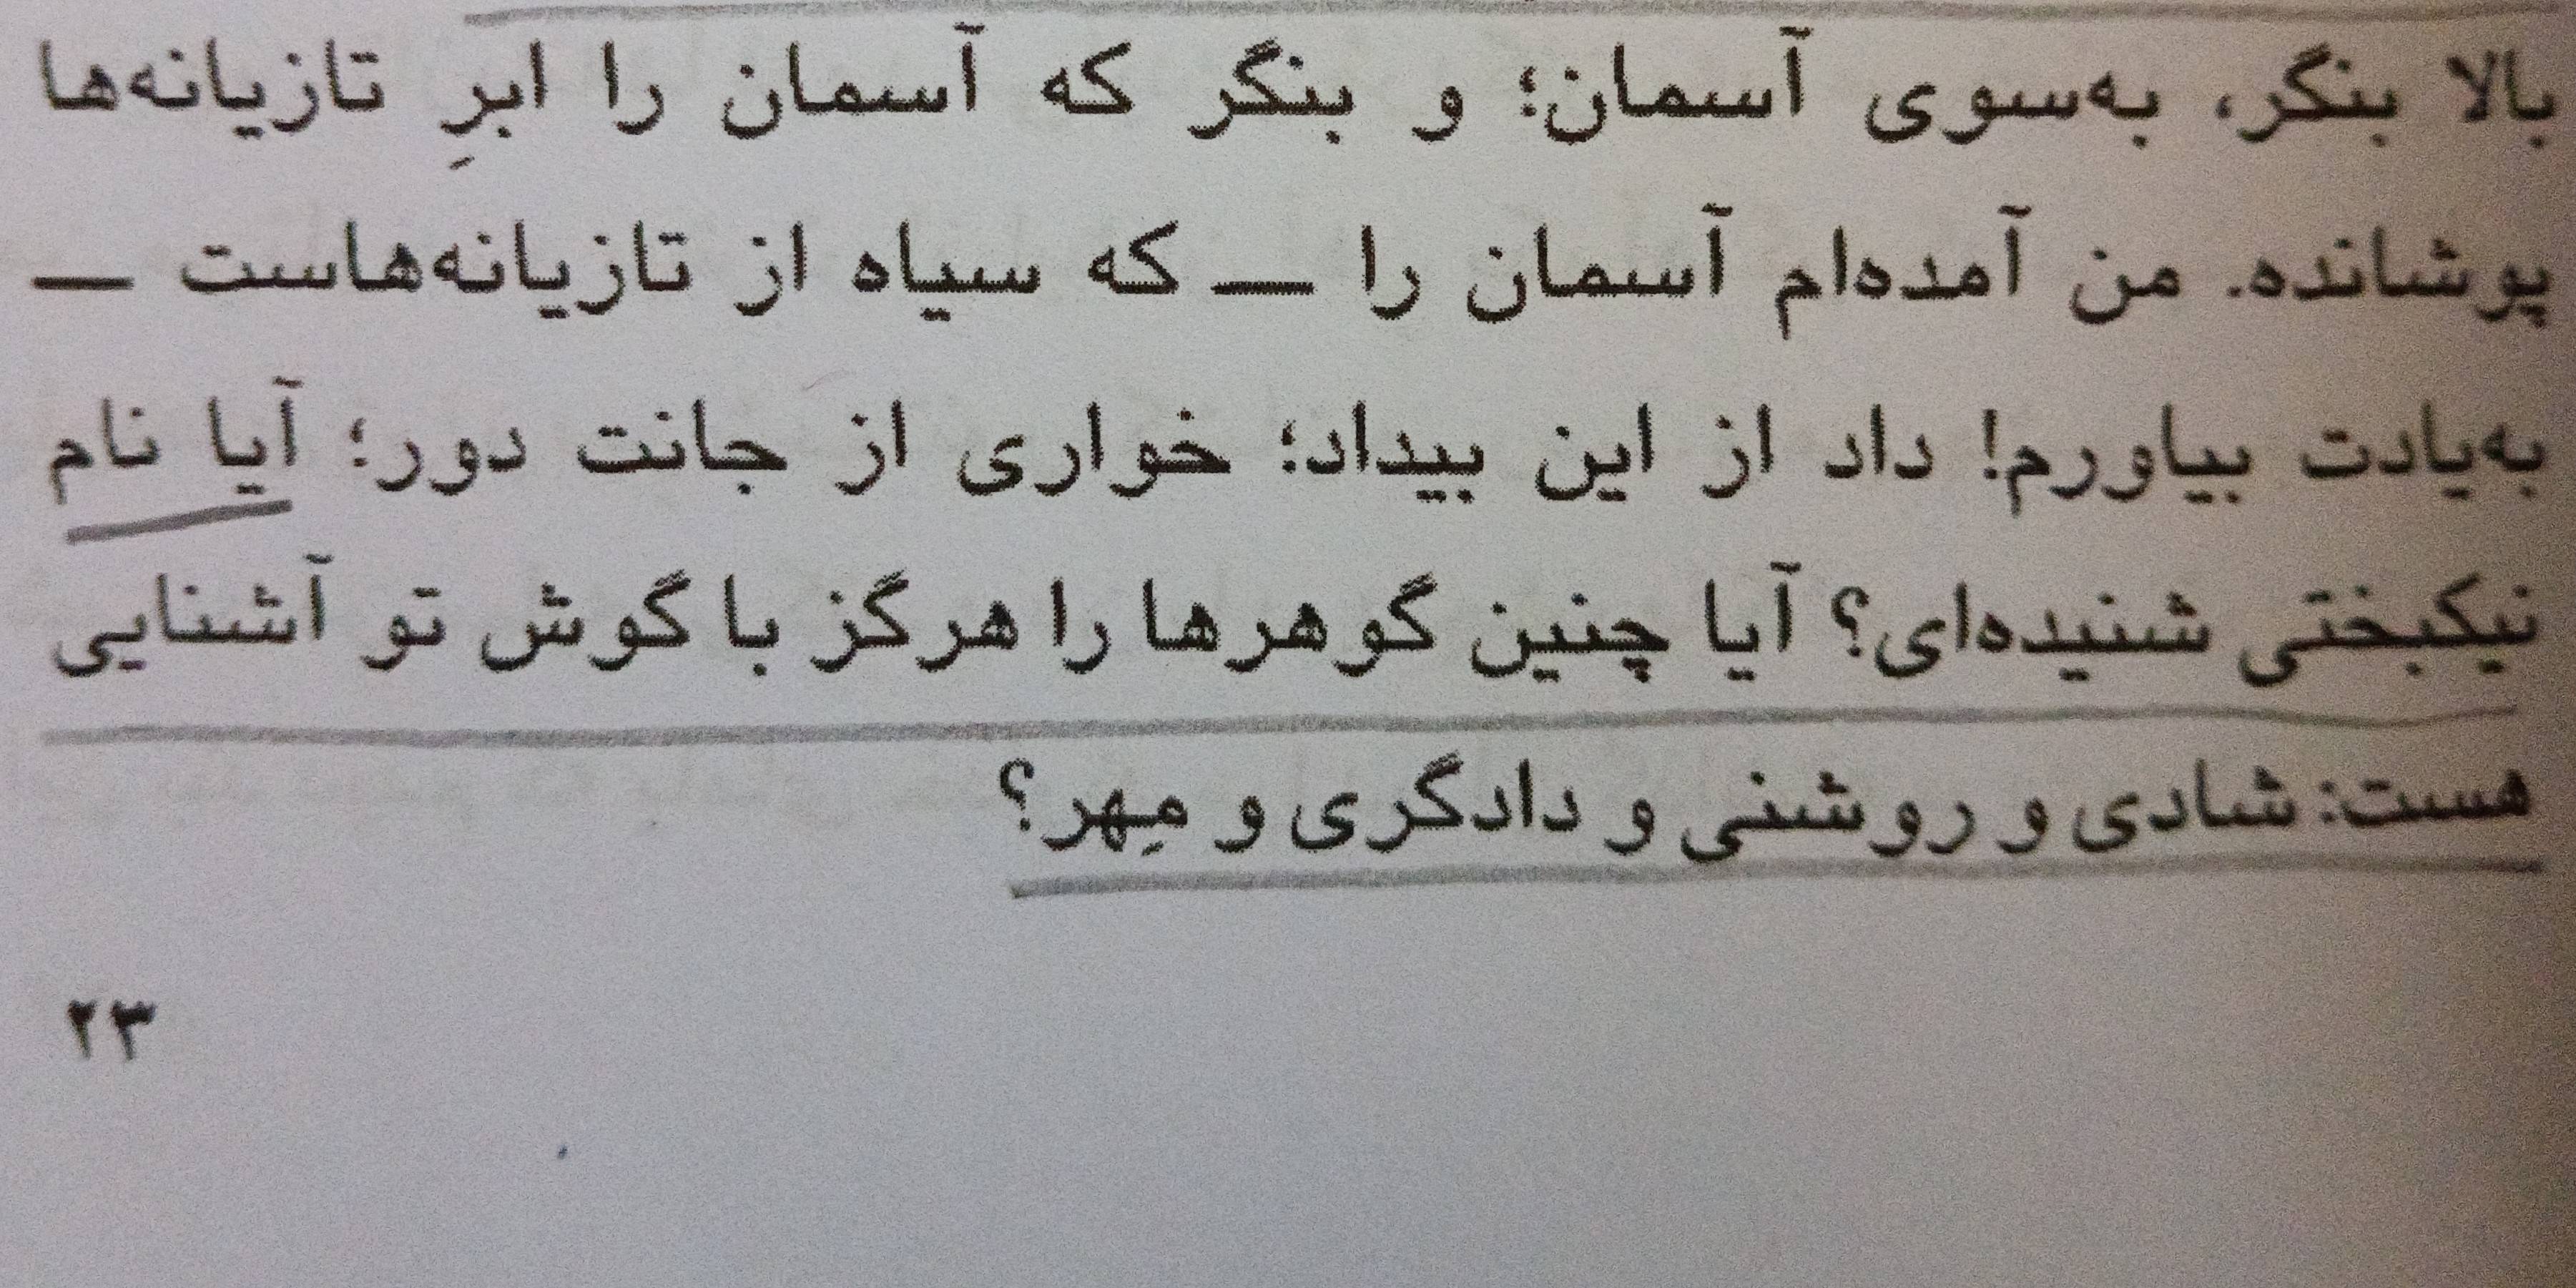 بالا بنگر، به‌سوی آسمان؛ و بنگر که آسمان را ابرِ تازیانه‌ها
پوشانده. من آمده‌ام آسمان را — که سیاه از تازیانه‌هاست —
به‌یادت بیاورم! داد از این بیداد؛ خواری از جانت دور؛ آیا نام
نیکبختی شنیده‌ای؟ آیا چنین گوهرها را هرگز با گوش تو آشنایی
هست: شادی و روشنی و دادگری و مِهر؟
۲۳